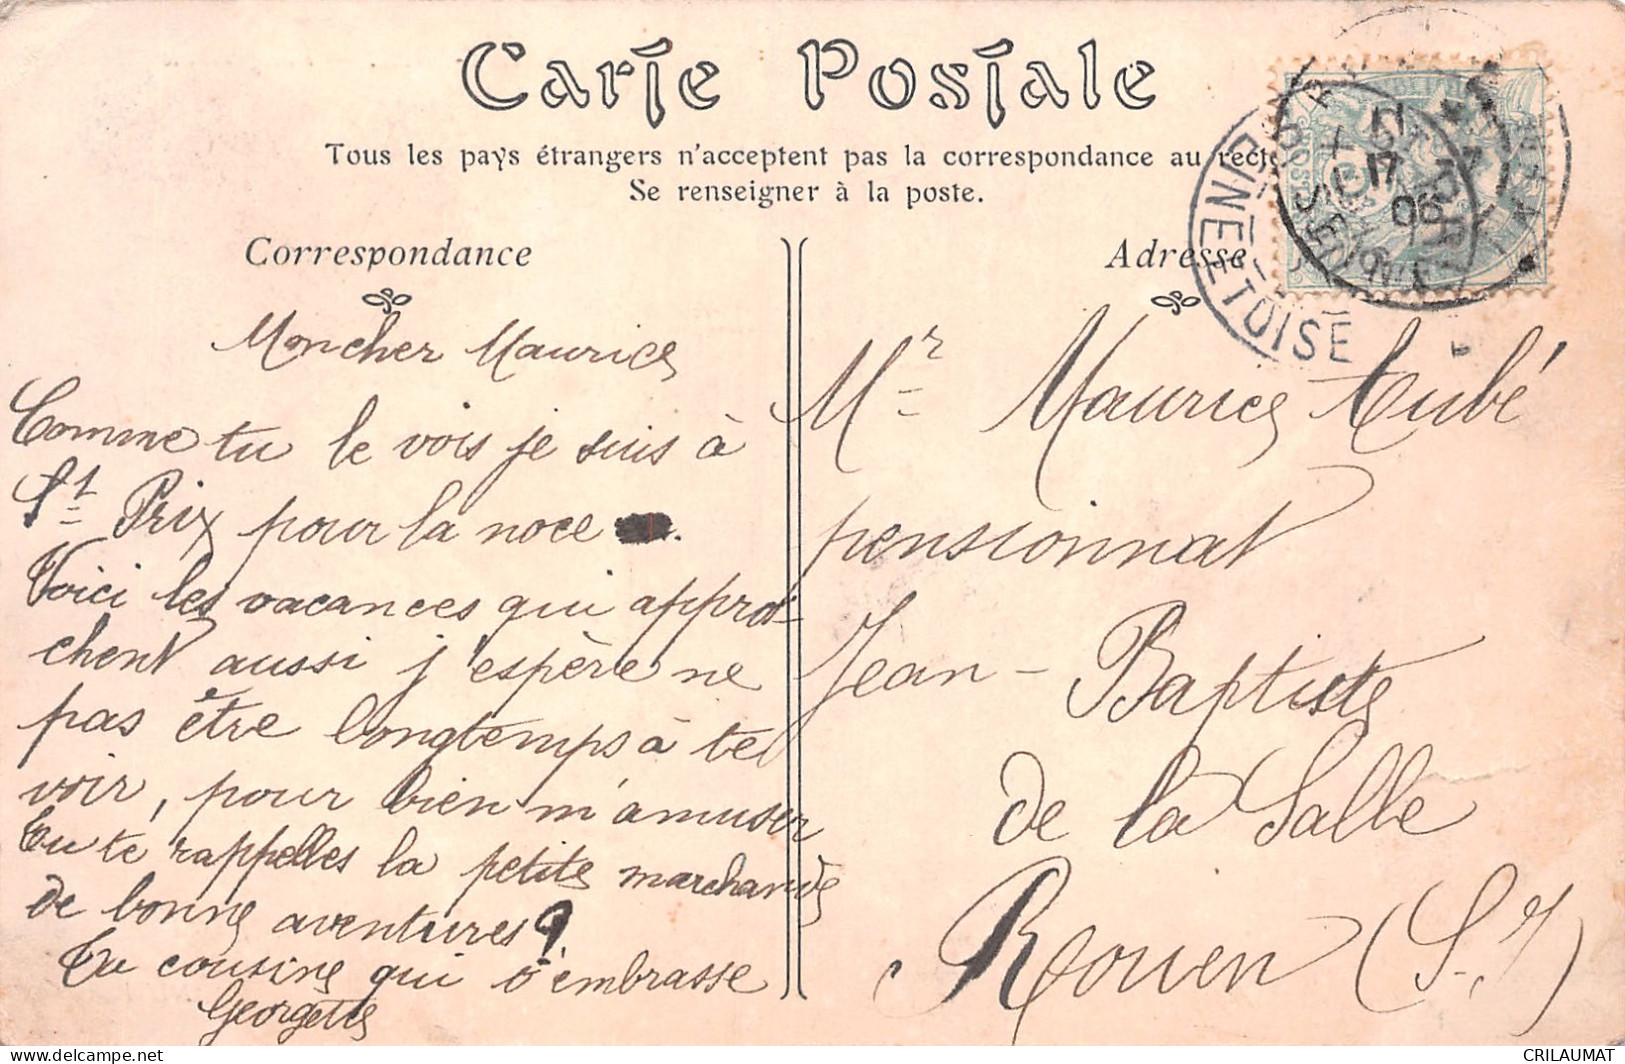 Carte Postale
Tous les pays étrangers n'acceptent pas la correspondance au recto
Se renseigner à la poste.
Correspondance
Mon cher Maurice
Comme tu le vois je suis à
St Prix pour la noce .
Voici les vacances qui appro-
chent aussi j'espère ne
pas être longtemps à te
voir, pour bien m'amuser
Tu te rappelles la petite marchande
de bonne aventures?
Ta cousine qui t'embrasse
Georgette
Adresse
SEINE ET OISE
Mr Maurice Aubé
pensionnat
Jean-Baptiste
de la Salle
Rouen (S.I)
delcampe.net
CRILAUMAT